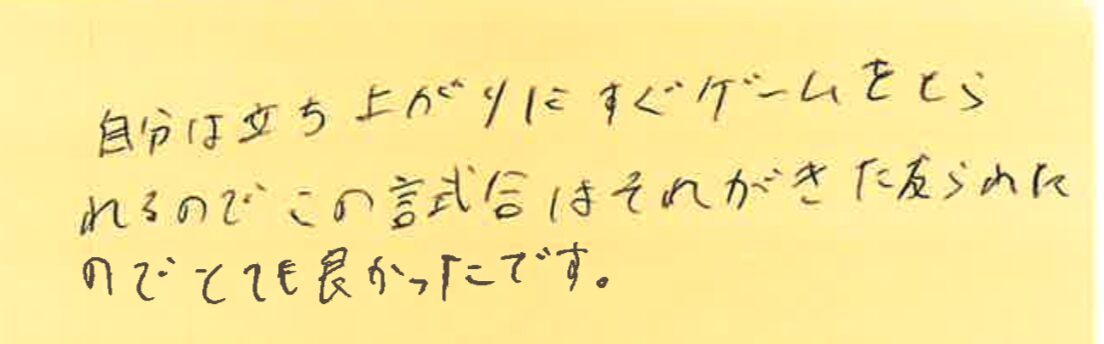 自分は立ち上がりにすぐゲームをとら
れるのでこの試合はそれがきたえられた
のでとても良かったです。